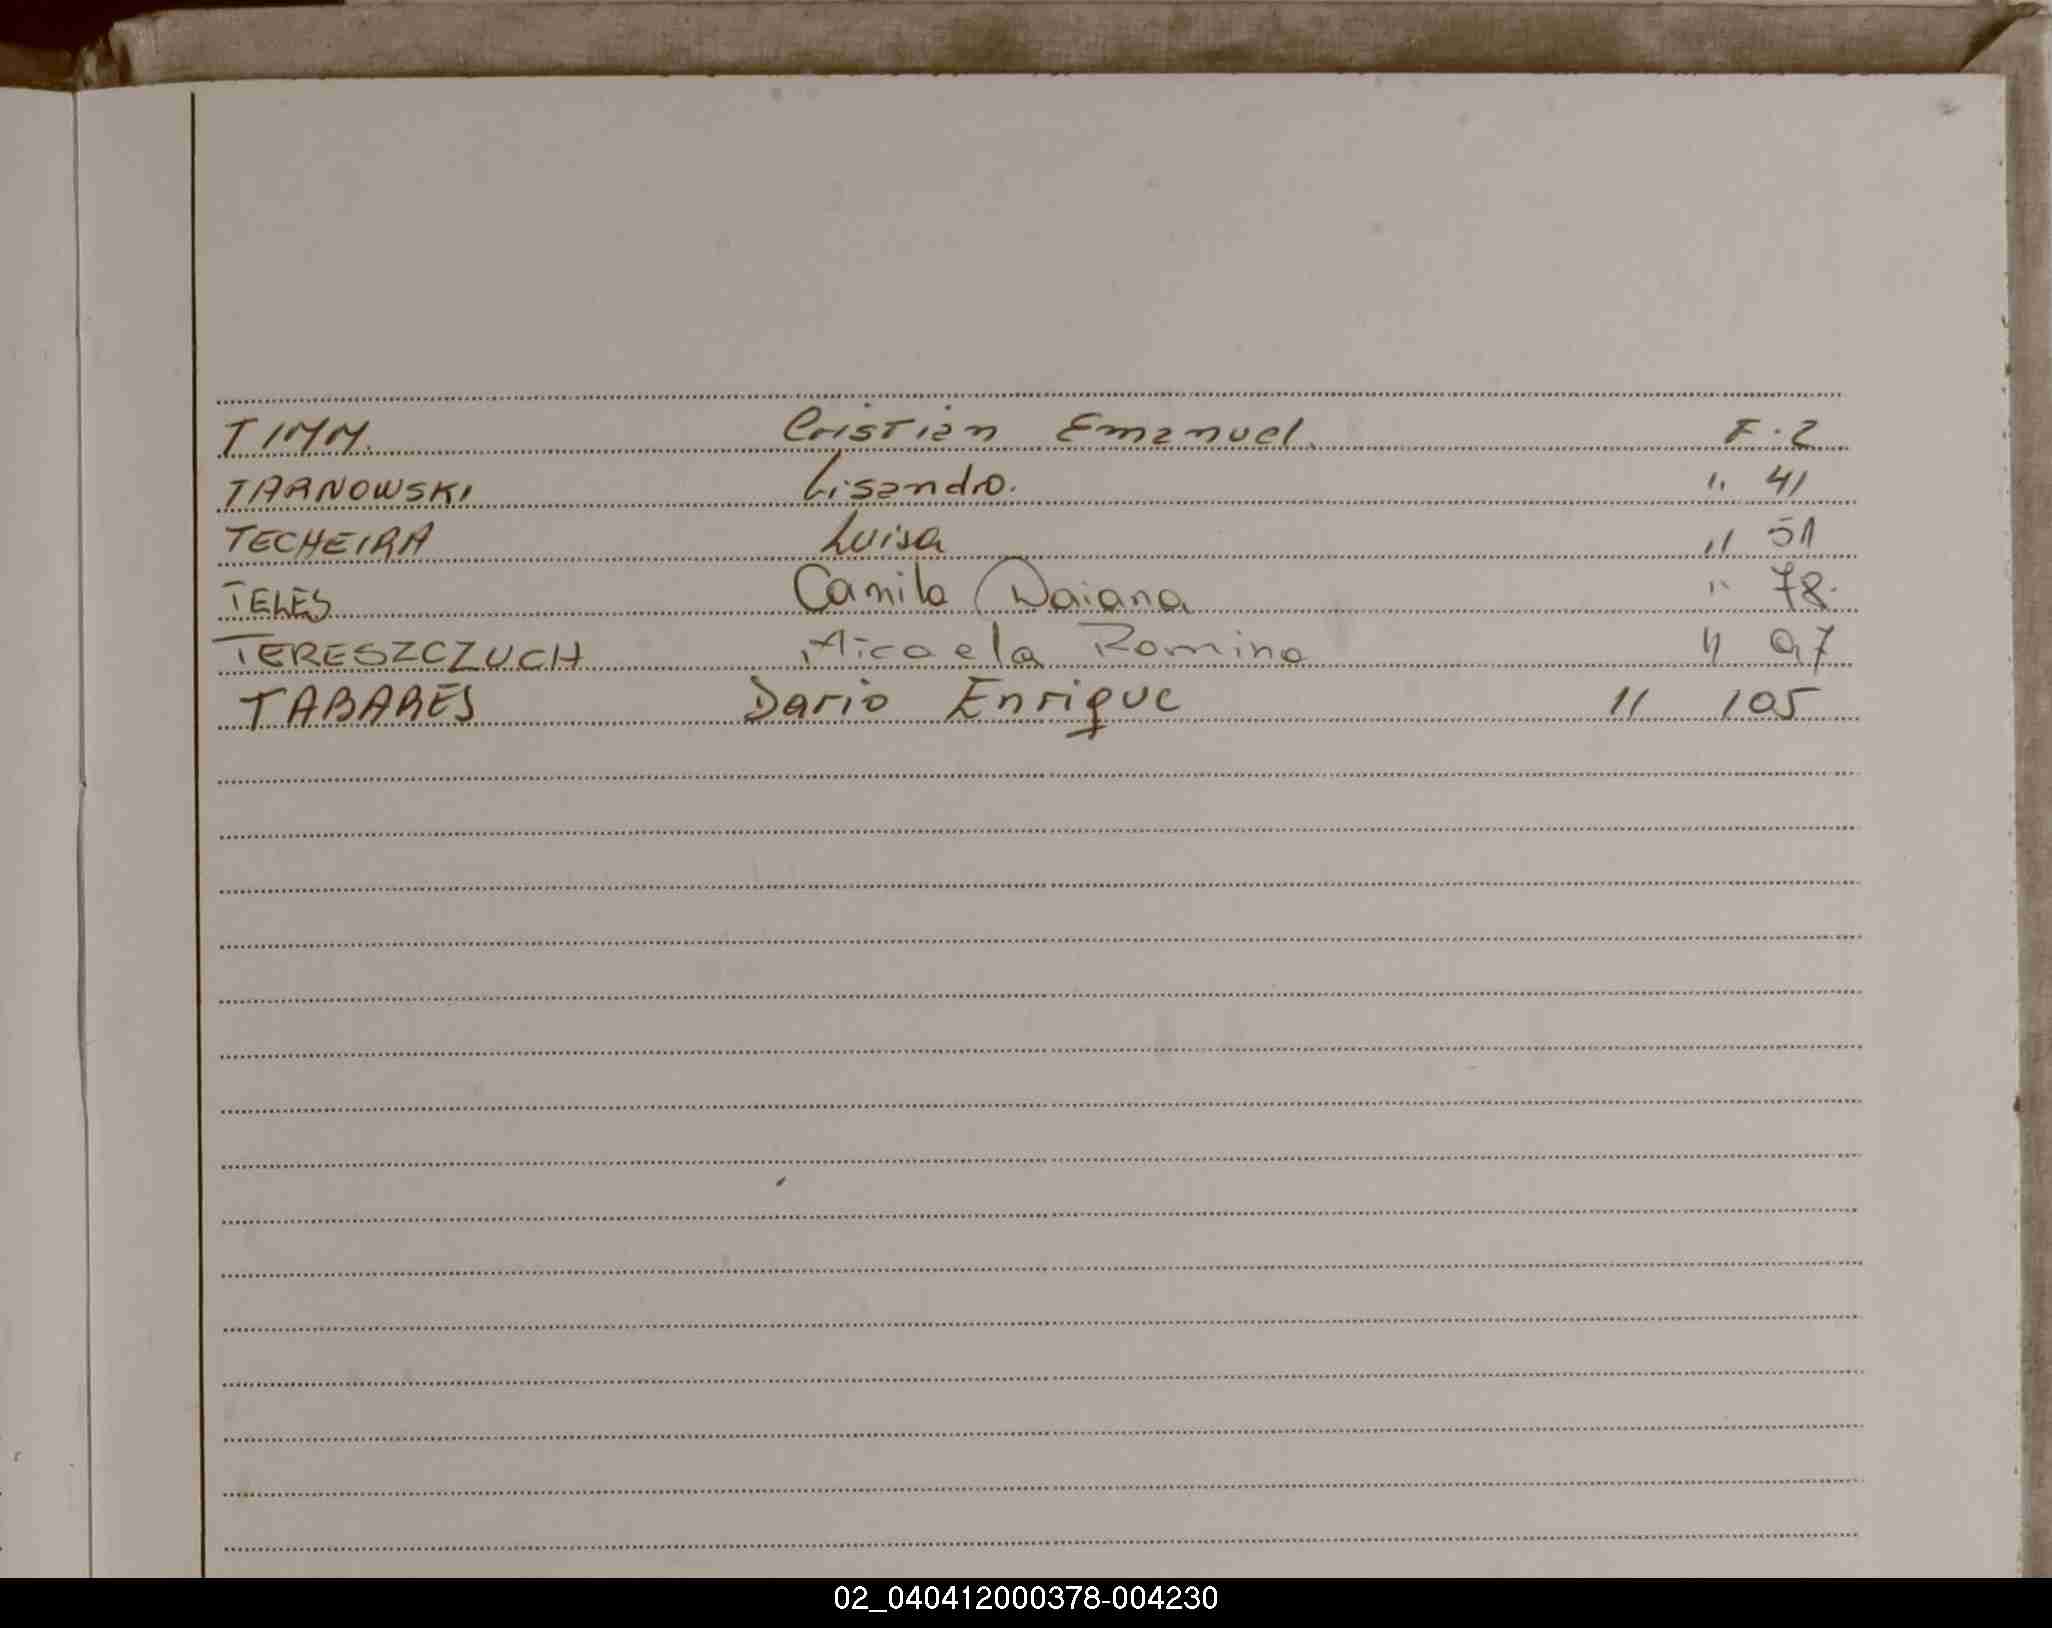 TIMM. Cristian Emanuel. F. 2
TARNOWSKI Lisandro. " 41
TECHEIRA Luisa " 51
TELES Camila Daiana " 78.
TERESZCZUCH Micaela Romina " 97
TABARES Dario Enrique " 105
02_040412000378-004230